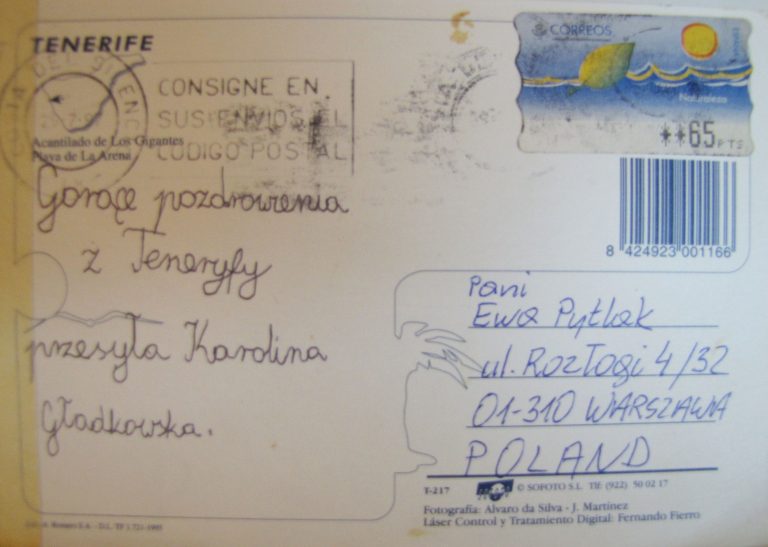 TENERIFE
CORREOS
Naturaleza
**65 PTS
CONSIGNE EN
SUS ENVIOS EL
CODIGO POSTAL
Acantilado de Los Gigantes
Playa de La Arena
8 424923 001166
Gorące pozdrowienia
z Teneryfy
przesyła Karolina
Gładkowska.
Pani
Ewa Pytlak
ul. Rozłogi 4/32
01-310 WARSZAWA
POLAND
T-217 © SOFOTO S.L. Tlf: (922) 50 02 17
Fotografía: Alvaro da Silva - J. Martínez
Láser Control y Tratamiento Digital: Fernando Fierro